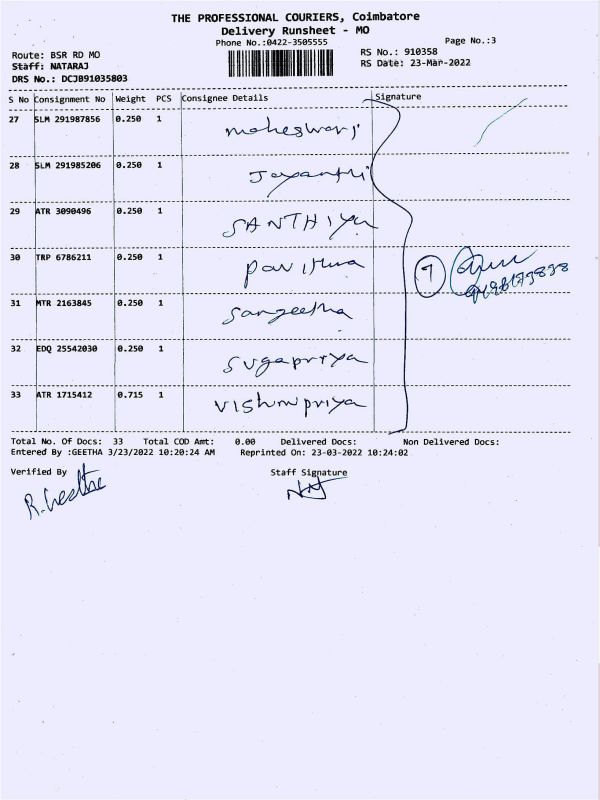 THE PROFESSIONAL COURIERS, Coimbatore
Delivery Runsheet - MO
Phone No.:0422-3505555
Page No.:3
Route: BSR RD MO
RS No.: 910358
Staff: NATARAJ
RS Date: 23-Mar-2022
DRS No.: DCJB91035803
S No Consignment No Weight PCS Consignee Details Signature
27 SLM 291987856 0.250 1 Maheswari
28 SLM 291985206 0.250 1 Jayanthi
29 ATR 3090496 0.250 1 SANTHIya
30 TRP 6786211 0.250 1 Pavithra
31 MTR 2163845 0.250 1 Sangeetha
32 EDQ 25542030 0.250 1 Sugapriya
33 ATR 1715412 0.715 1 Vishnupriya
7
Total No. Of Docs: 33 Total COD Amt: 0.00 Delivered Docs: Non Delivered Docs:
Entered By :GEETHA 3/23/2022 10:20:24 AM Reprinted On: 23-03-2022 10:24:02
Verified By Staff Signature
R. Geetha